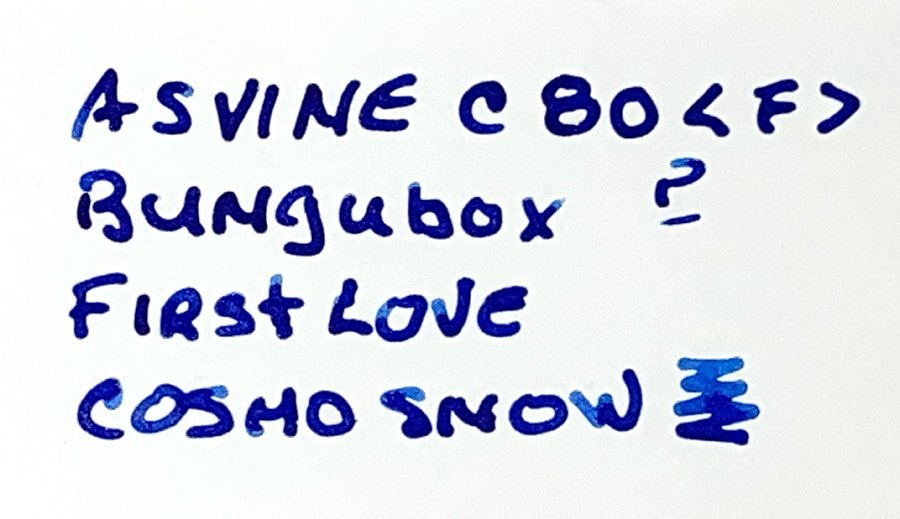 ASVINE C80 <F>
Bungubox ?
FIRST LOVE
COSMO SNOW